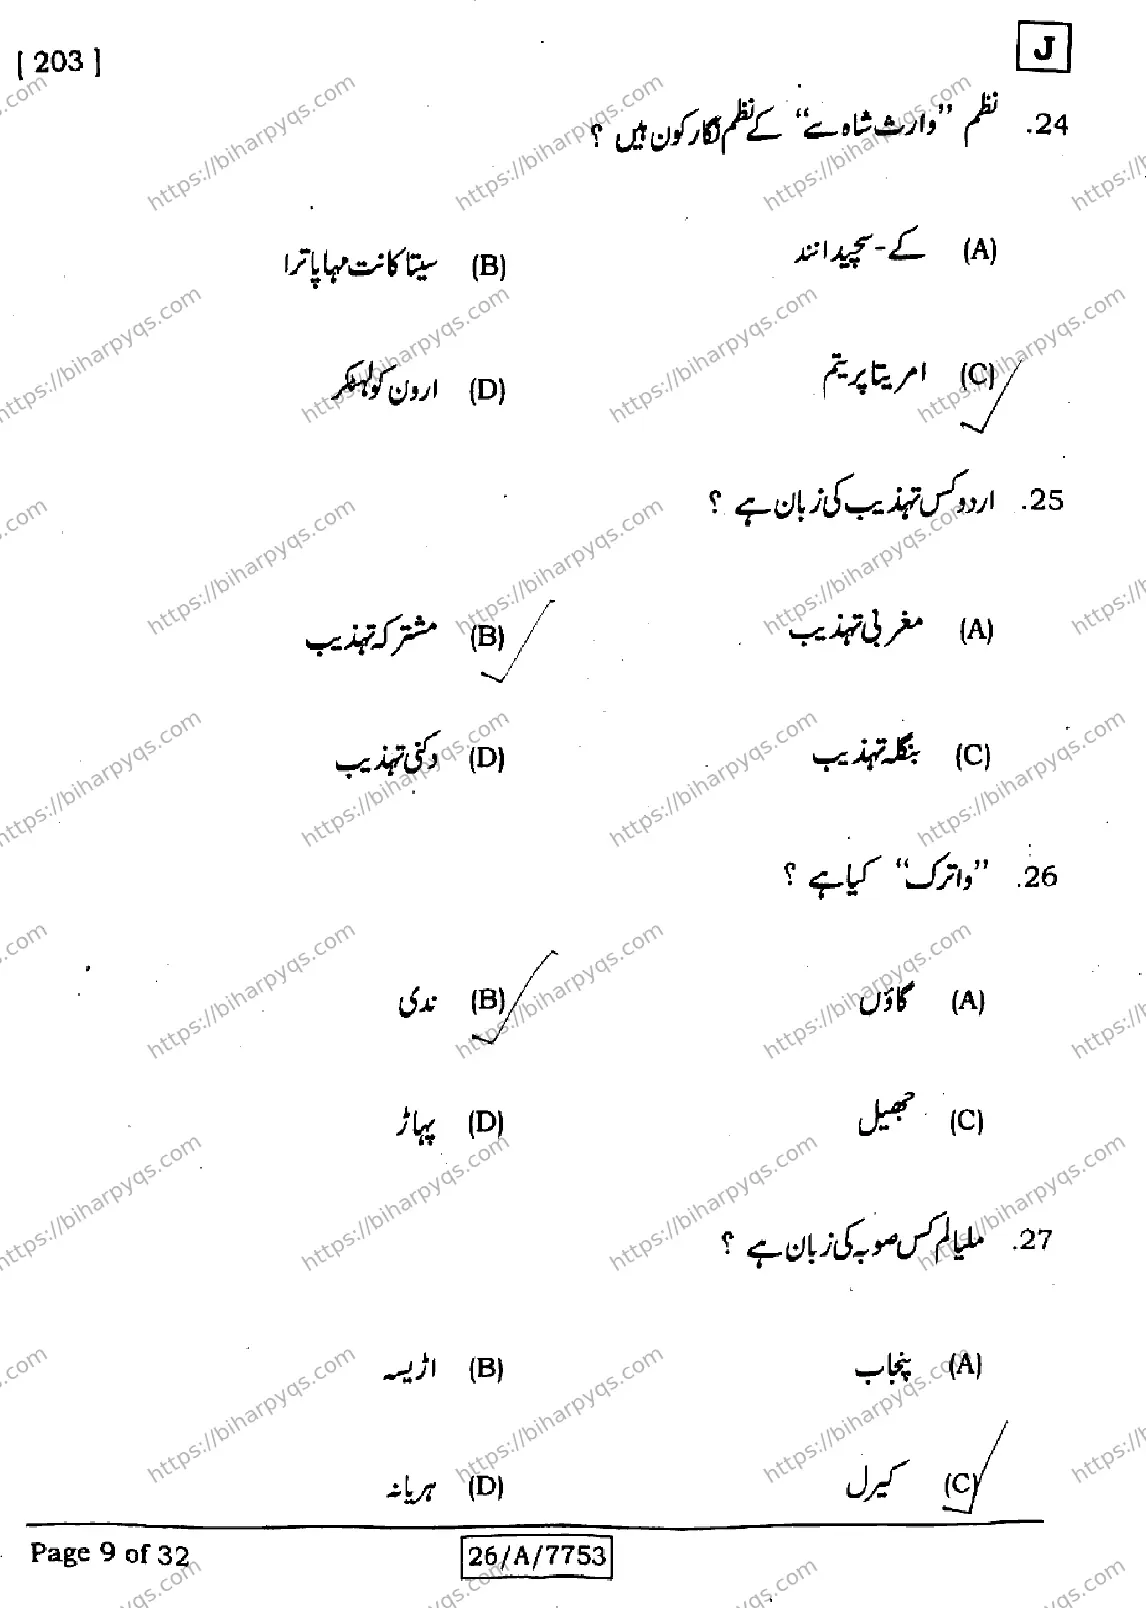 [ 203 ]
J
24. نظم "وارث شاہ سے" کے نظم نگار کون ہیں ؟
(A) کے - سچیدانند
(B) سیتا کانت مہاپاترا
(C) امریتا پریتم
(D) ارون کولہٹکر
25. اردو کس تہذیب کی زبان ہے ؟
(A) مغربی تہذیب
(B) مشترکہ تہذیب
(C) بنگلہ تہذیب
(D) دکنی تہذیب
26. "واترک" کیا ہے ؟
(A) گاؤں
(B) ندی
(C) جھیل
(D) پہاڑ
27. ملیالم کس صوبہ کی زبان ہے ؟
(A) پنجاب
(B) اڑیسہ
(C) کیرل
(D) ہریانہ
Page 9 of 32
26/A/7753
https://biharpyqs.com